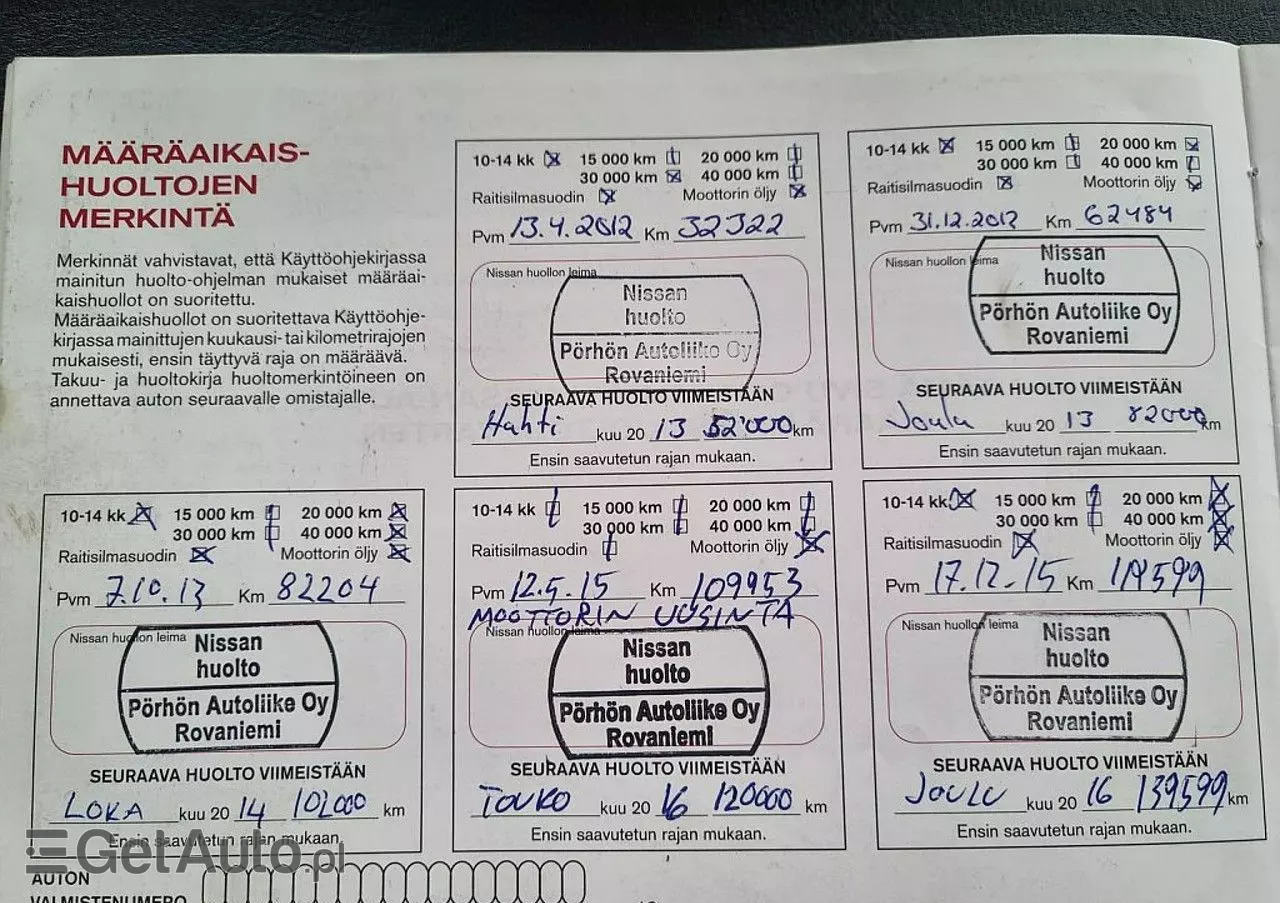 MÄÄRÄAIKAIS-
HUOLTOJEN
MERKINTÄ
Merkinnät vahvistavat, että Käyttöohjekirjassa
mainitun huolto-ohjelman mukaiset määräai-
kaishuollot on suoritettu.
Määräaikaishuollot on suoritettava Käyttöohje-
kirjassa mainittujen kuukausi- tai kilometrirajojen
mukaisesti, ensin täyttyvä raja on määräävä.
Takuu- ja huoltokirja huoltomerkintöineen on
annettava auton seuraavalle omistajalle.
10-14 kk 15 000 km 20 000 km
30 000 km 40 000 km
Raitisilmasuodin Moottorin öljy
Pvm 13.4.2012 Km 32322
Nissan huollon leima
Nissan
huolto
Pörhön Autoliike Oy
Rovaniemi
SEURAAVA HUOLTO VIIMEISTÄÄN
Huhti kuu 20 13 52'000 km
Ensin saavutetun rajan mukaan.
10-14 kk 15 000 km 20 000 km
30 000 km 40 000 km
Raitisilmasuodin Moottorin öljy
Pvm 31.12.2012 Km 62484
Nissan huollon leima
Nissan
huolto
Pörhön Autoliike Oy
Rovaniemi
SEURAAVA HUOLTO VIIMEISTÄÄN
Joulu kuu 20 13 82000 km
Ensin saavutetun rajan mukaan.
10-14 kk 15 000 km 20 000 km
30 000 km 40 000 km
Raitisilmasuodin Moottorin öljy
Pvm 7.10.13 Km 82204
Nissan huollon leima
Nissan
huolto
Pörhön Autoliike Oy
Rovaniemi
SEURAAVA HUOLTO VIIMEISTÄÄN
LOKA kuu 20 14 102000 km
Ensin saavutetun rajan mukaan.
10-14 kk 15 000 km 20 000 km
30 000 km 40 000 km
Raitisilmasuodin Moottorin öljy
Pvm 12.5.15 Km 109953
MOOTTORIN UUSINTA
Nissan huollon leima
Nissan
huolto
Pörhön Autoliike Oy
Rovaniemi
SEURAAVA HUOLTO VIIMEISTÄÄN
TOUKO kuu 20 16 120000 km
Ensin saavutetun rajan mukaan.
10-14 kk 15 000 km 20 000 km
30 000 km 40 000 km
Raitisilmasuodin Moottorin öljy
Pvm 17.12-15 Km 119599
Nissan huollon leima
Nissan
huolto
Pörhön Autoliike Oy
Rovaniemi
SEURAAVA HUOLTO VIIMEISTÄÄN
JOULU kuu 20 16 139599 km
Ensin saavutetun rajan mukaan.
GetAuto.pl
AUTON
VALMISTENUMERO